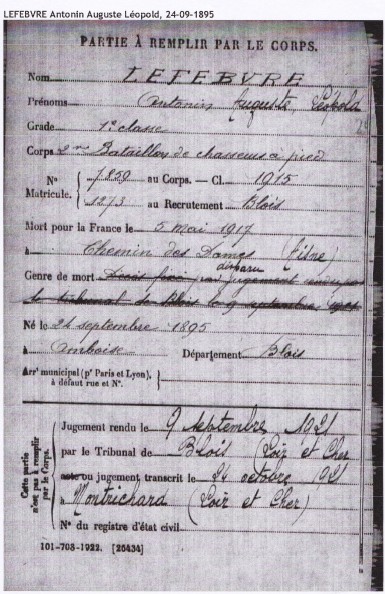 LEFEBVRE Antonin Auguste Léopold, 24-09-1895
PARTIE À REMPLIR PAR LE CORPS.
Nom LEFEBVRE
Prénoms Antonin Auguste Léopold
Grade 1e classe
Corps 2me Bataillon de chasseurs à pied
N° 7259 au Corps. — Cl. 1915
Matricule. 1273 au Recrutement Blois
Mort pour la France le 5 mai 1917
à Chemin des Dames (Aisne)
disparu
Genre de mort Décès fixé par jugement
le tribunal de Blois le 9 septembre 1921
Né le 24 septembre 1895
à Amboise Département Blois
Arrt municipal (pr Paris et Lyon),
à défaut rue et N°.
Cette partie n'est pas à remplir par le Corps.
Jugement rendu le 9 septembre 1921
par le Tribunal de Blois (Loir et Cher
acte ou jugement transcrit le 24 octobre 1921
à Montrichard (Loir et Cher)
N° du registre d'état civil
101-708-1922. [26434]